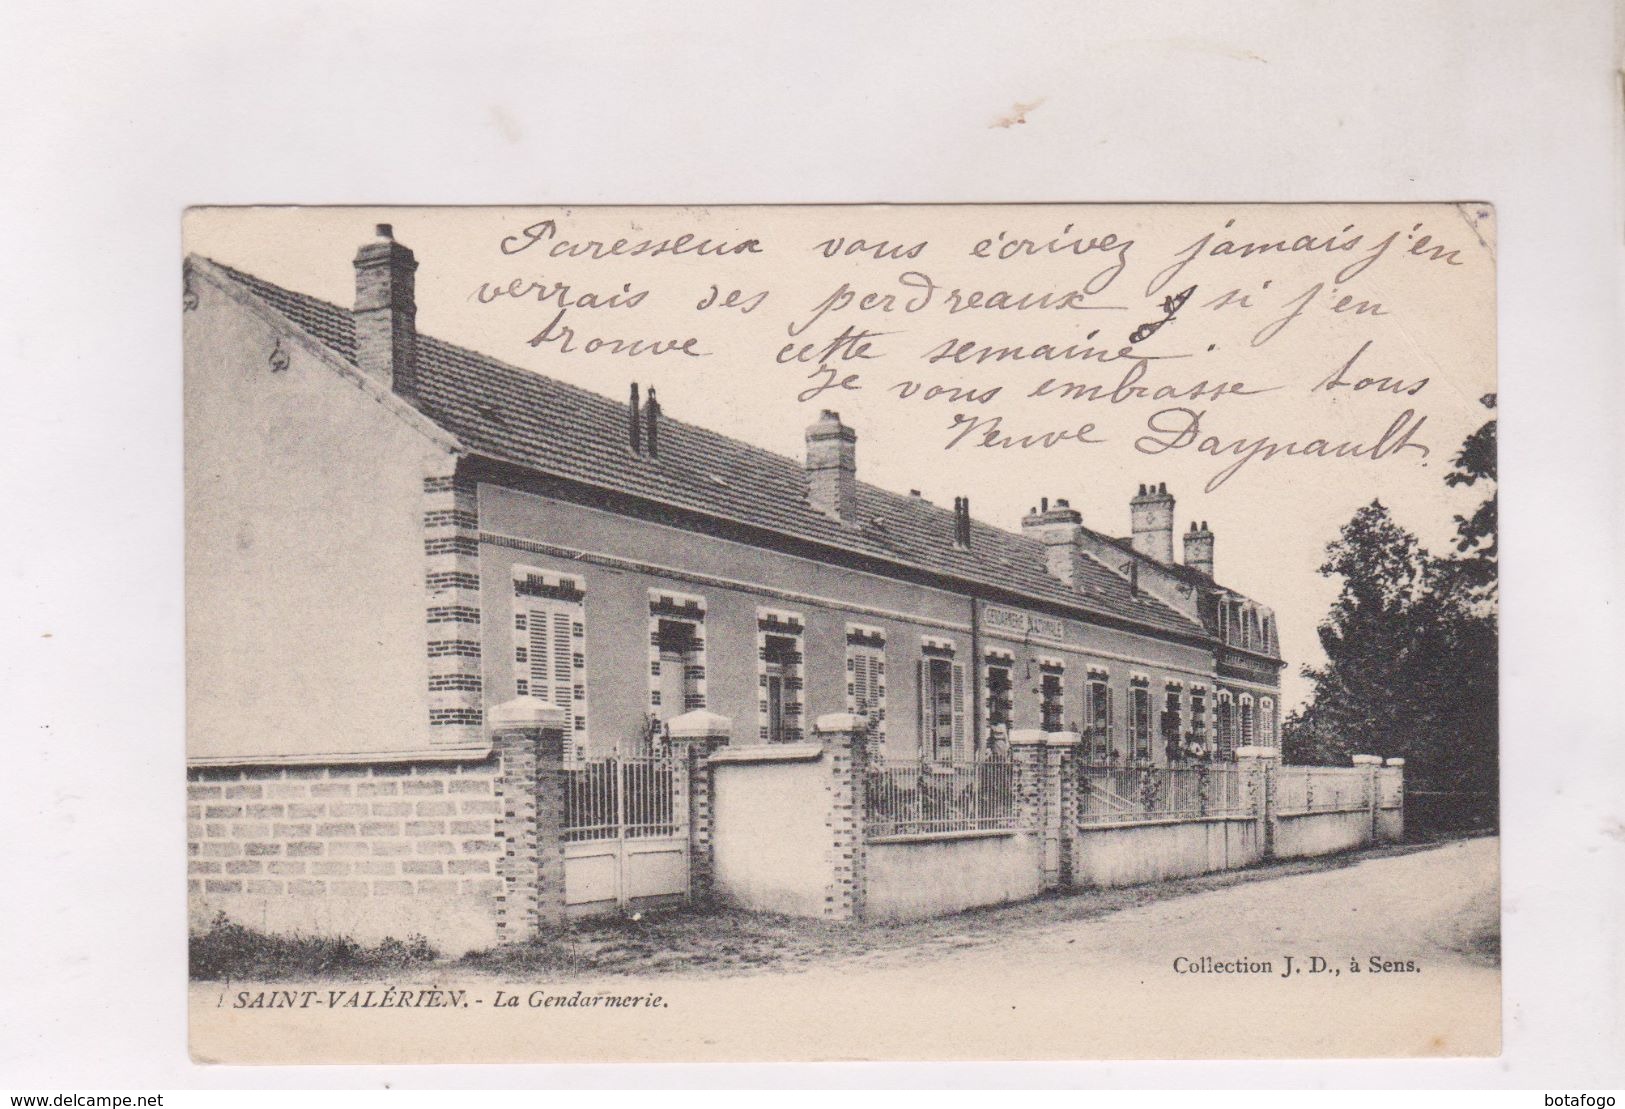 Paresseux vous écrivez jamais j'en
verrais des perdreaux si j'en
trouve cette semaine.
Je vous embrasse tous
Veuve Daynault
GENDARMERIE NATIONALE
Collection J. D., à Sens.
SAINT-VALÉRIEN. - La Gendarmerie.
www.delcampe.net
botafogo